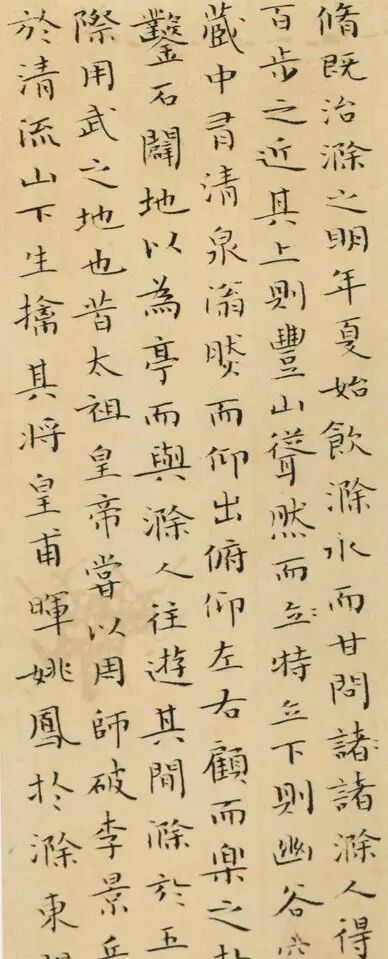 脩既治滁之明年夏始飲滁水而甘問諸諸滁人得
百步之近其上則豐山聳然而立特立下則幽谷
藏中有清泉滃然而仰出俯仰左右顧而樂之
鑿石闢地以為亭而與滁人往遊其間滁於五
際用武之地也昔太祖皇帝嘗以周師破李景兵
於清流山下生擒其將皇甫暉姚鳳於滁東